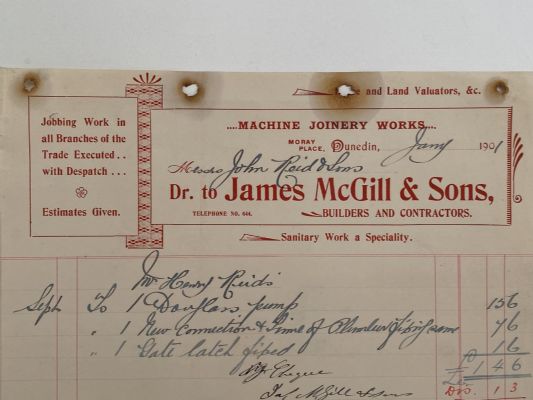 and Land Valuators, &c.
Jobbing Work in
all Branches of the
Trade Executed..
with Despatch...
Estimates Given.
....MACHINE JOINERY WORKS...
MORAY PLACE, Dunedin, Jany 1901
Messrs John Reid & Sons
Dr. to James McGill & Sons,
TELEPHONE NO. 444. BUILDERS AND CONTRACTORS.
Sanitary Work a Speciality.
Mr Henry Reids
Sept To 1 Douglass pump 15 6
" 1 New Connection & Time of Plumber fixing same 7 6
" 1 Gate latch fixed 1 6
£ 1 4 6
By Cheque
Jas McGill & Sons
Dis. 1 3